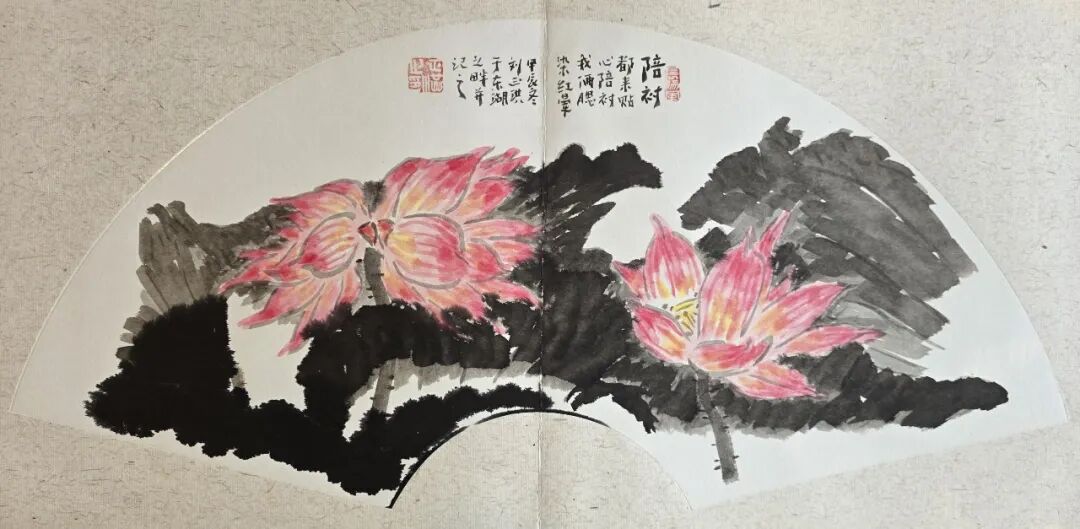 陪衬
都来贴
心陪衬
我俩腮
染红晕
甲辰冬
刘正
于东湖
之畔并
记之